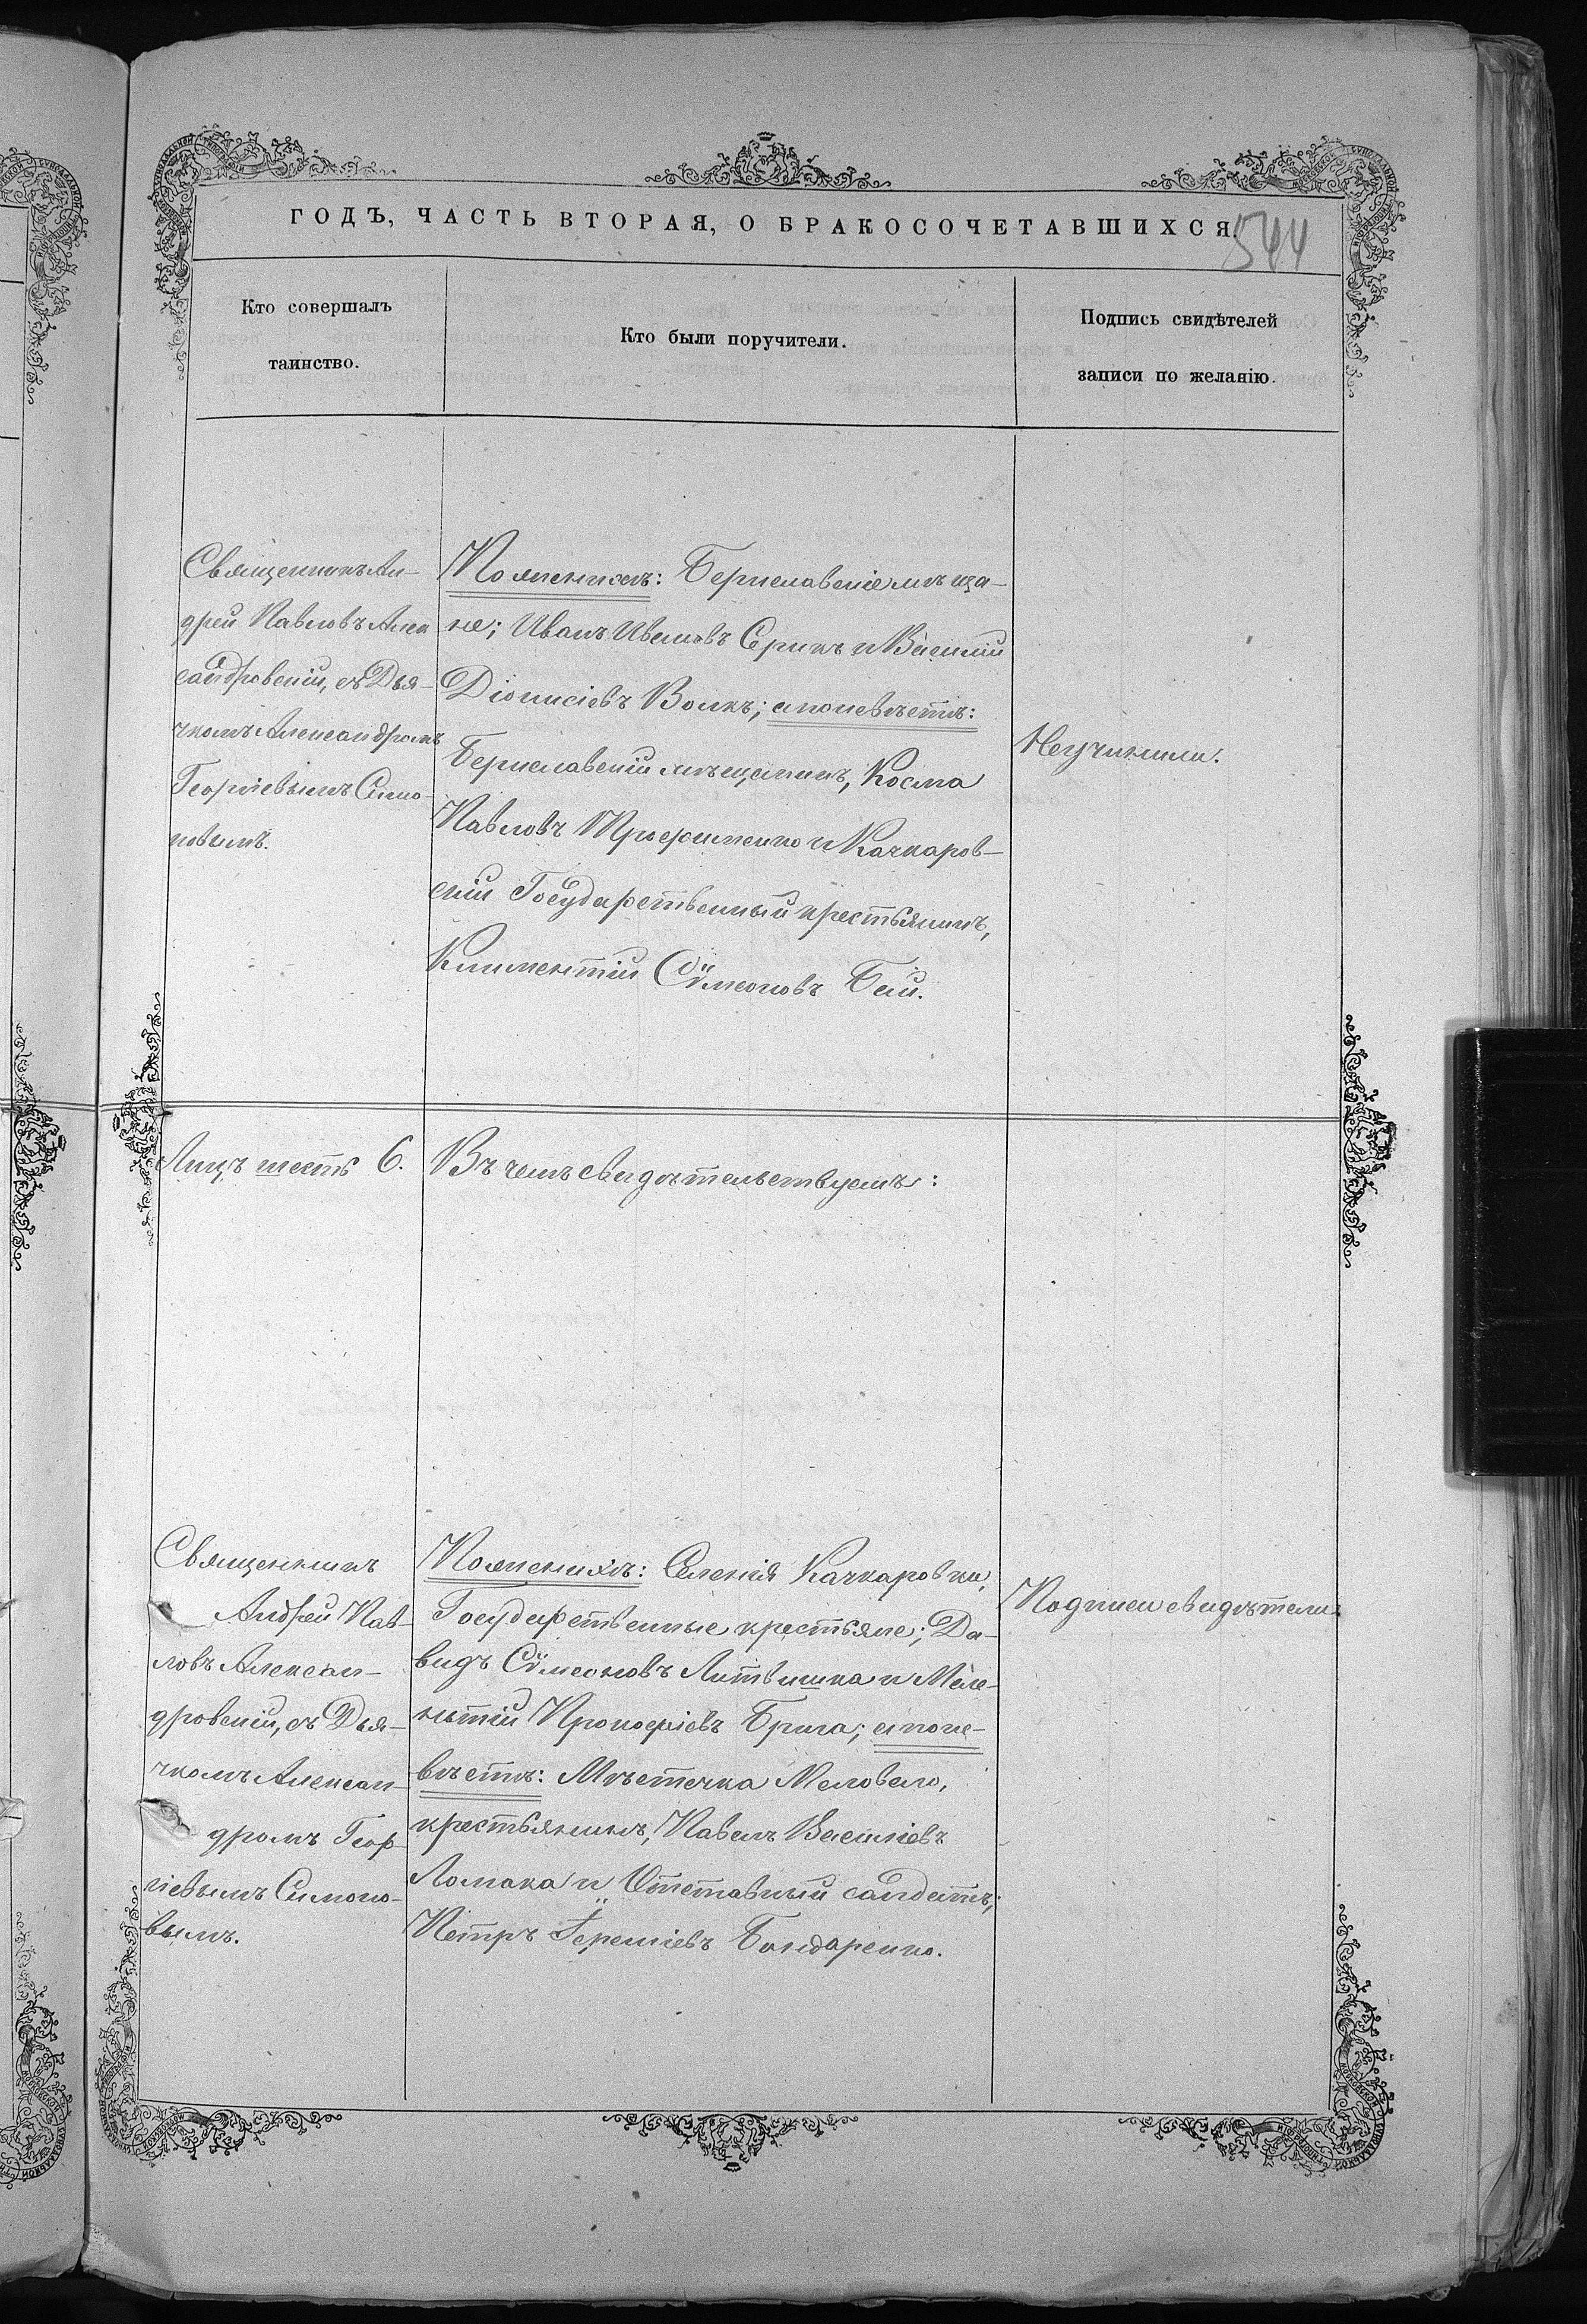 ГОДЪ, ЧАСТЬ ВТОРАЯ, О БРАКОСОЧЕТАВШИХСЯ.
544
Кто совершалъ
таинство.
Кто были поручители.
Подпись свидѣтелей
записи по желанію.
Священникъ Ан-
дрей Павловъ Алек
сандровскій, съ Дья-
чкомъ Александромъ
Георгіевымъ Симо-
новымъ.
По женихѣ: Бериславскіе мѣща-
не; Иванъ Ивановъ Серикъ и Василій
Діонисіевъ Волкъ; а по невѣстѣ:
Бериславскій мѣщанинъ, Косма
Павловъ Трофименко и Качкаров-
скій Государственный крестьянинъ,
Климентій Сѵмеоновъ Бай.
Неучинили.
Лицъ шесть 6.
Въ чемъ свидѣтельствуемъ:
Священникъ
Андрей Пав-
ловъ Алексан-
дровскій, съ Дья-
чкомъ Алексан-
дромъ Геор-
гіевымъ Симоно-
вымъ.
По женихѣ: Селенія Качкаровки,
Государственные крестьяне; Да-
видъ Сѵмеоновъ Литвишка и Меле-
нтій Прокофіевъ Брига; а по не-
вѣстѣ: Мѣстечка Меловаго,
крестьянинъ, Павелъ Василіевъ
Ломака и Отставный солдатъ;
Петръ Іереміевъ Бондаренко.
Подписи свидѣтели